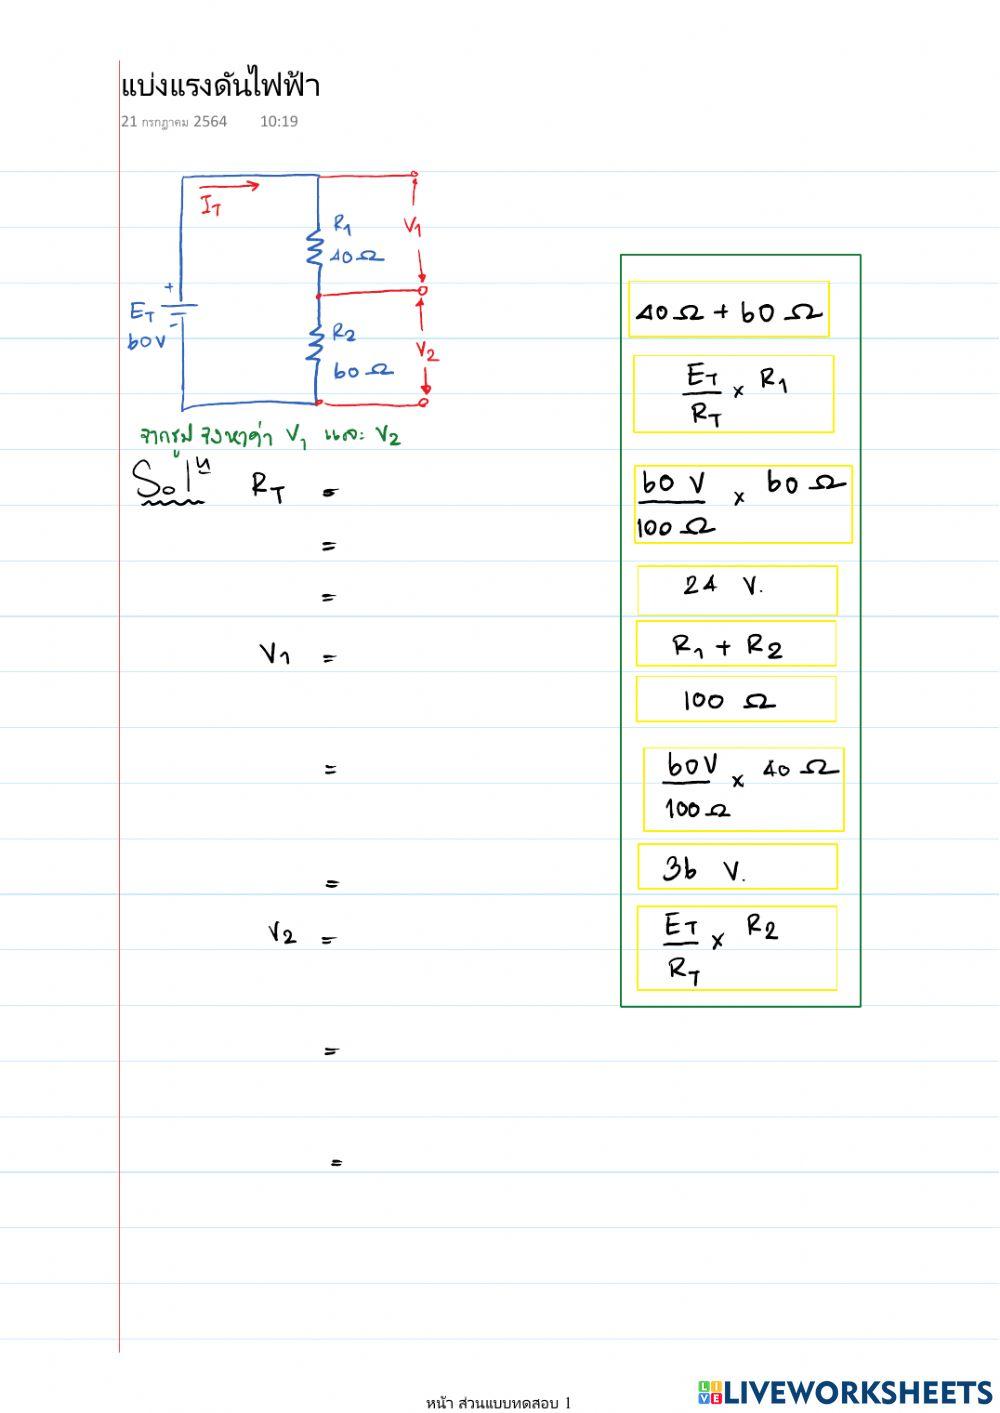 แบ่งแรงดันไฟฟ้า
21 กรกฎาคม 2564 10:19
IT
R1
40 Ω
V1
+
ET
-
60V
R2
60 Ω
V2
จากรูป จงหาค่า V1 และ V2
Solⁿ RT =
=
=
V1 =
=
=
V2 =
=
=
40 Ω + 60 Ω
ET
RT × R1
60 V
100 Ω × 60 Ω
24 V.
R1 + R2
100 Ω
60V
100 Ω × 40 Ω
36 V.
ET
RT × R2
หน้า ส่วนแบบทดสอบ 1
LIVEWORKSHEETS